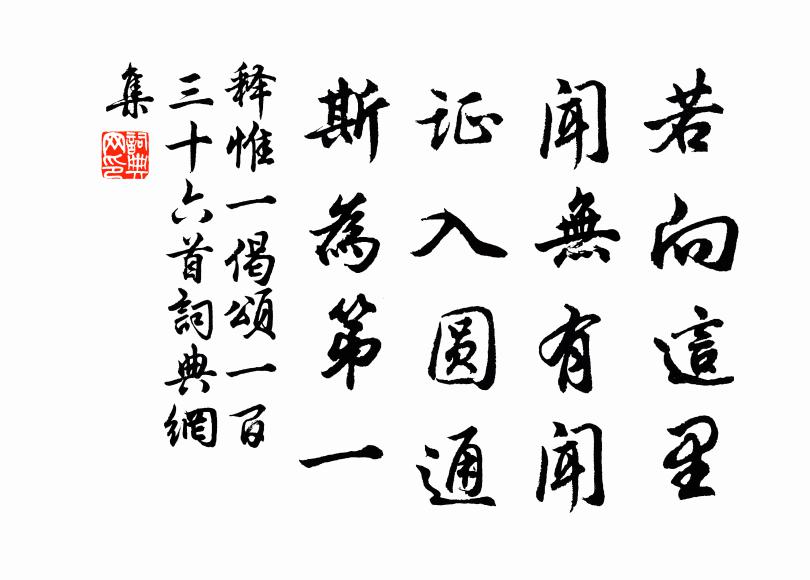 若向這里
聞無有聞
证入圆通
斯為第一
释惟一偈頌一百
三十六首詞典網
集
詞典
网印